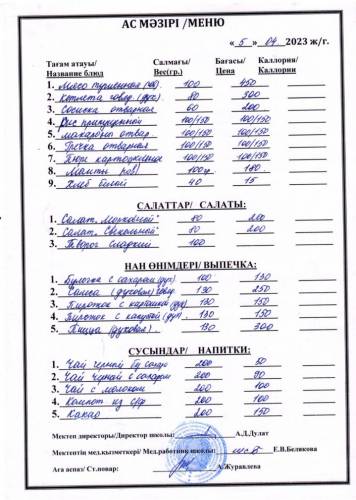 АС МӘЗІРІ /МЕНЮ
« 5 » 04 2023 ж/г.
Тағам атауы/ Салмағы/ Бағасы/ Каллория/
Название блюд Вес(гр.) Цена Каллории
1. Мясо тушенная (гов) 100 450
2. Котлета говяд. (дух) 80 300
3. Сосиска отварная 60 200
4. Рис припущенный 100/150 100/150
5. макароны отвар 100/150 100/150
6. Гречка отварная 100/150 100/150
7. Пюре картофельное 100/150 100/150
8. Манты гов 100гр 180
9. Хлеб белый 40 15
САЛАТТАР/ САЛАТЫ:
1. Салат "Морковный" 80
2. Салат "Свекольный" 80 200
3. Творог сладкий 100
НАН ӨНІМДЕРІ/ ВЫПЕЧКА:
1. Булочка с сахаром (дух) 100 130
2. Самса (духовая) говяд. 130 250
3. Пирожок с картошкой (дух) 130 150
4. Пирожок с капустой (дух. 130 150
5. Пицца (духовая) 130 300
СУСЫНДАР/ НАПИТКИ:
1. Чай черный б/ сахара 200 50
2. Чай черный с сахаром 200 90
3. Чай с молоком 200 100
4. Компот из с/ф 200 100
5. Какао 200 150
Мектеп директоры/Директор школы: А.Д.Дулат
Мектептің мед.қызметкері/ Мед.работник школы: Е.В.Беликова
Аға аспаз/ Ст.повар: А.Журавлева